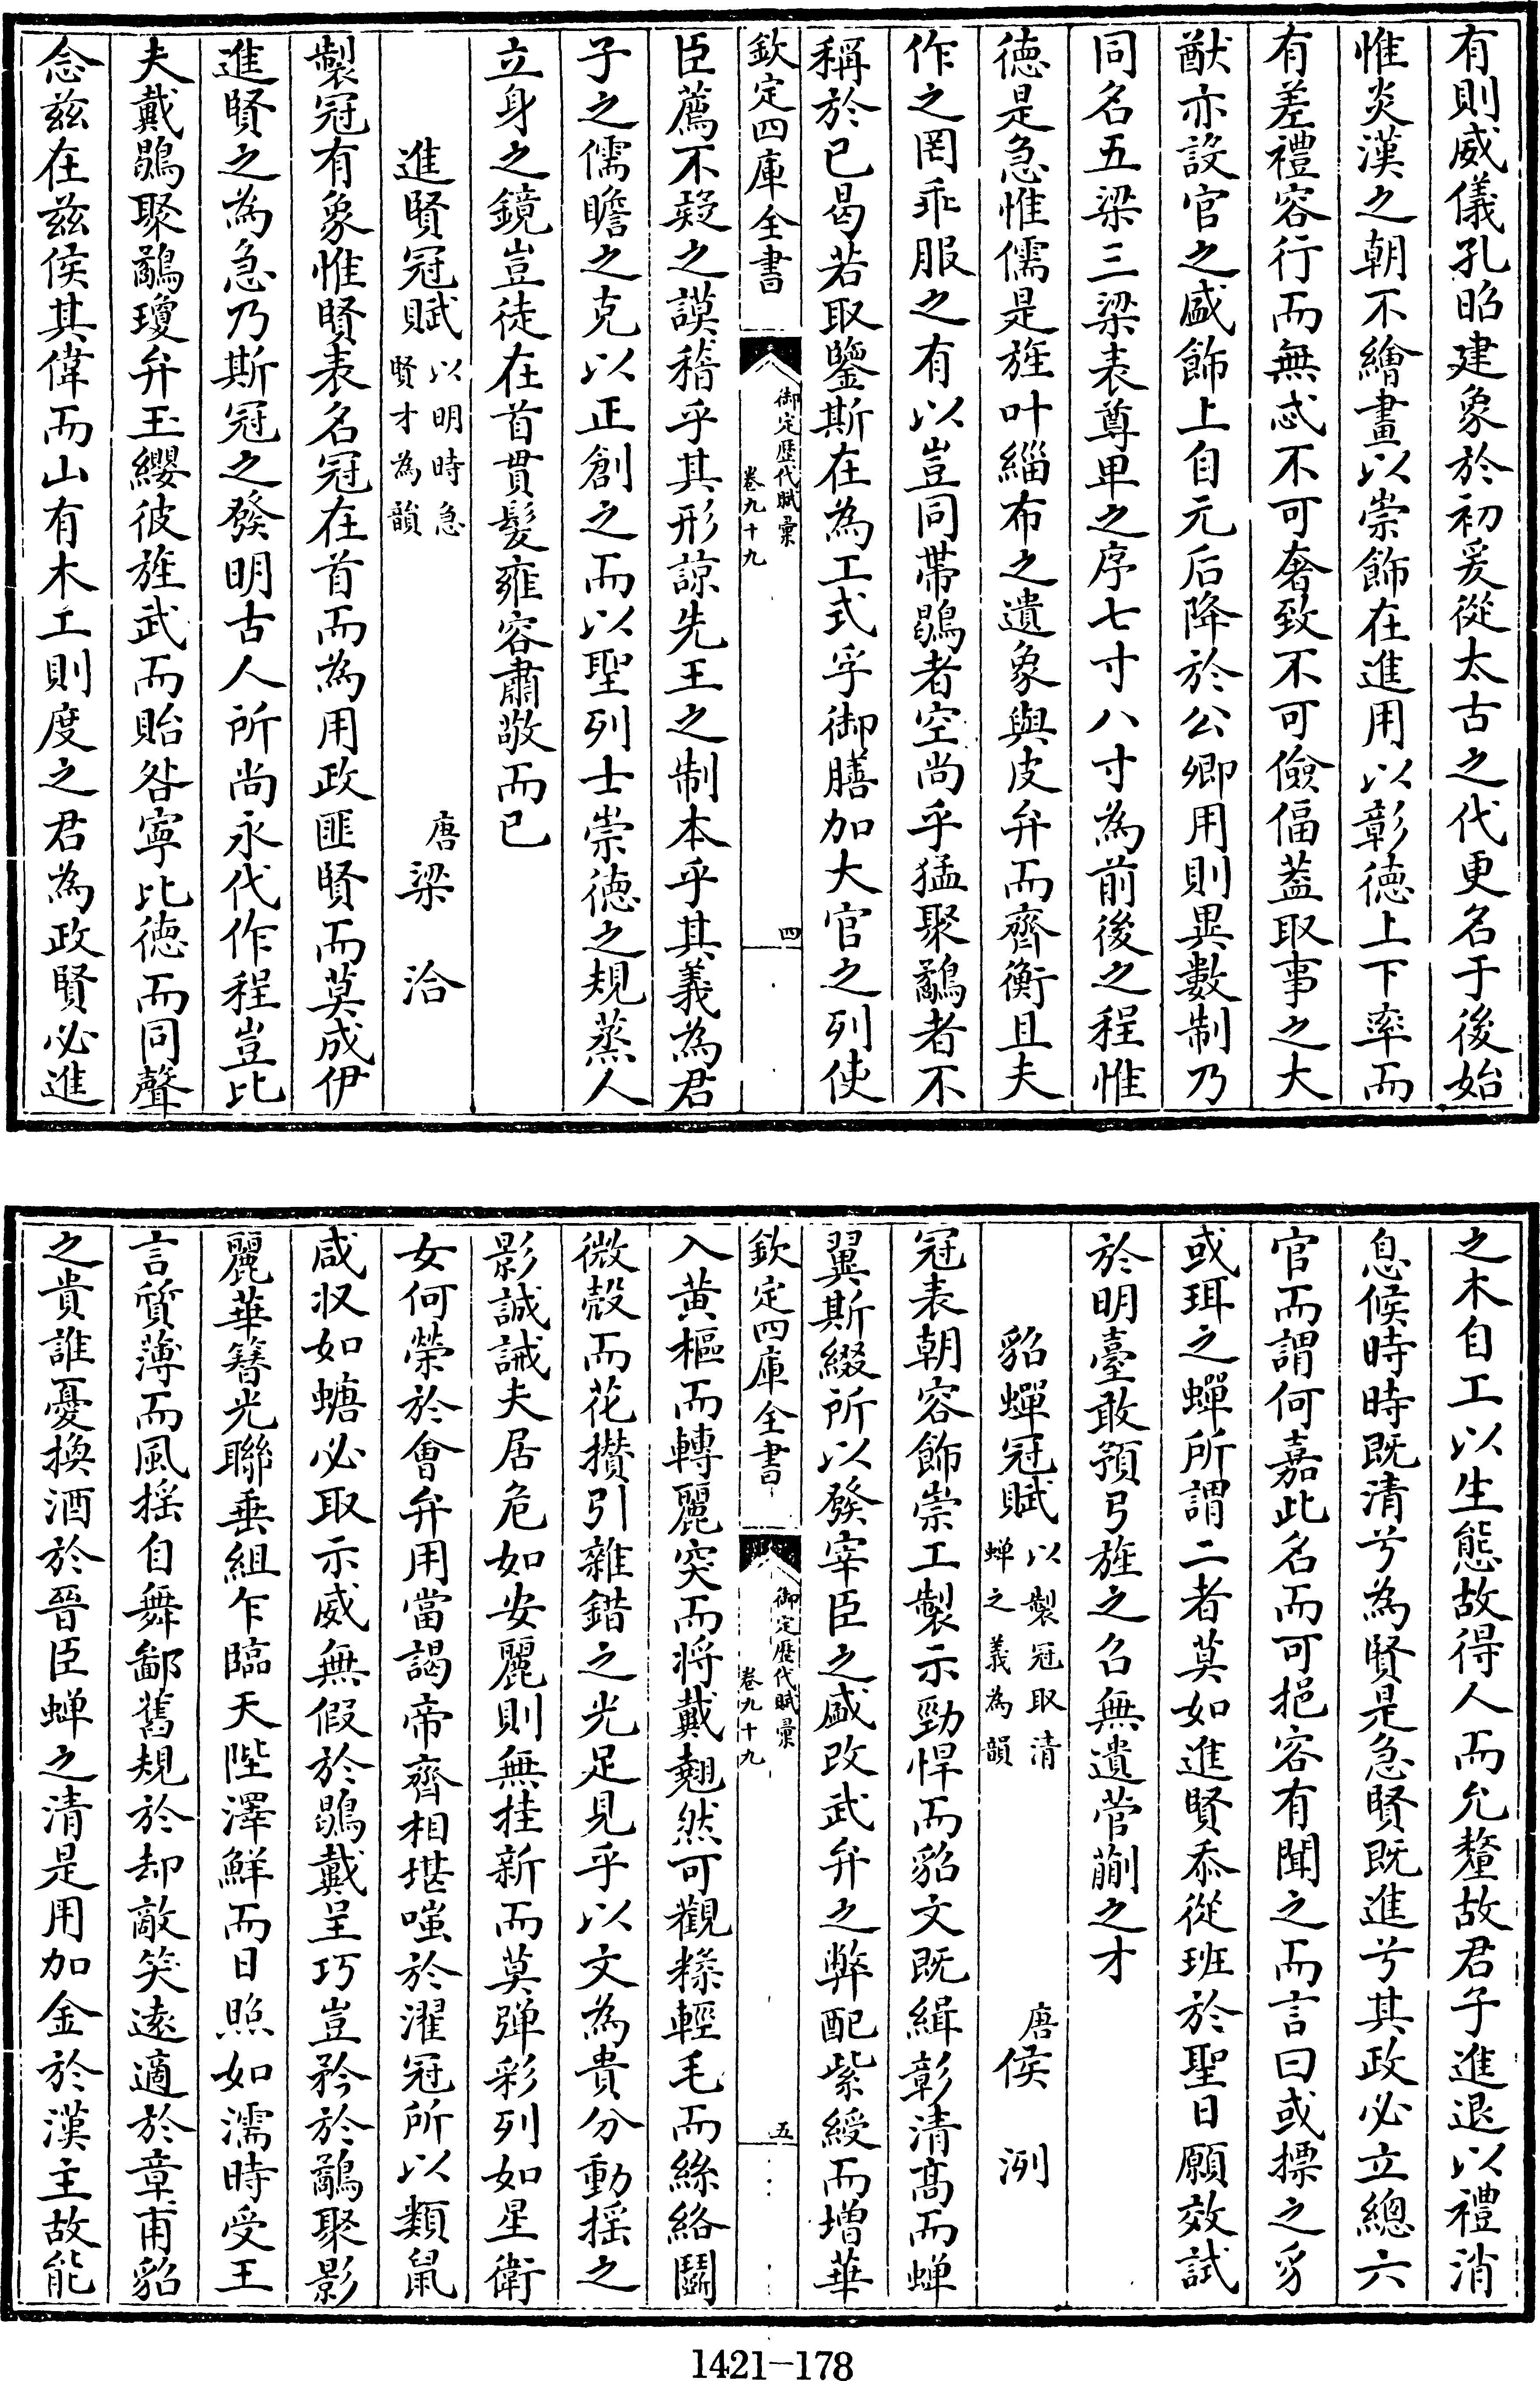 有則威儀孔昭建象於初爰從太古之代更名于後始
惟炎漢之朝不繪畫以崇飾在進用以彰德上下率而
有差禮容行而無忒不可奢致不可儉偪蓋取事之大
猷亦設官之盛飾上自元后降於公卿用則異數制乃
同名五梁三梁表尊卑之序七寸八寸為前後之程惟
德是急惟儒是旌叶緇布之遺象與皮弁而齊衡且夫
作之罔乖服之有以豈同帶鶡者空尚乎猛聚鷸者不
稱於己曷若取鑒斯在為工式孚御膳加大官之列使
欽定四庫全書
御定歴代賦彙
卷九十九
四
臣薦不疑之謨稽乎其形諒先王之制本乎其義為君
子之儒瞻之克以正創之而以聖列士崇德之規蒸人
立身之鏡豈徒在首貫髮雍容肅敬而已
進賢冠賦以明時急賢才為韻
唐梁洽
製冠有象惟賢表名冠在首而為用政匪賢而莫成伊
進賢之為急乃斯冠之發明古人所尚永代作程豈比
夫戴鶡聚鷸瓊弁玉纓彼旌武而貽咎寧比德而同聲
念茲在茲侯其偉而山有木工則度之君為政賢必進
之木自工以生態故得人而允釐故君子進退以禮消
息候時時既清兮為賢是急賢既進兮其政必立總六
官而謂何嘉此名而可挹容有聞之而言曰或摽之豸
或珥之蟬所謂二者莫如進賢忝從班於聖日願效試
於明臺敢預弓旌之召無遺菅蒯之才
貂蟬冠賦以製冠取清蟬之義為韻
唐侯冽
冠表朝容飾崇工製示勁悍而貂文既緝彰清高而蟬
翼斯綴所以發宰臣之盛改武弁之弊配紫綬而增華
欽定四庫全書
御定歴代賦彙
卷九十九
五
入黃樞而轉麗突而將戴翹然可觀糅輕毛而絲絡鬬
微殻而花攢引雜錯之光足見乎以文為貴分動搖之
影誠誡夫居危如安麗則無挂新而莫彈彩列如星衛
女何榮於會弁用當謁帝齊相堪嗤於濯冠所以類鼠
咸收如螗必取示威無假於鶡戴呈巧豈矜於鷸聚影
麗華簪光聯垂組乍臨天陛澤鮮而日照如濡時受王
言質薄而風搖自舞鄙舊規於却敵笑遠適於章甫貂
之貴誰憂換酒於晉臣蟬之清是用加金於漢主故能
1421-178